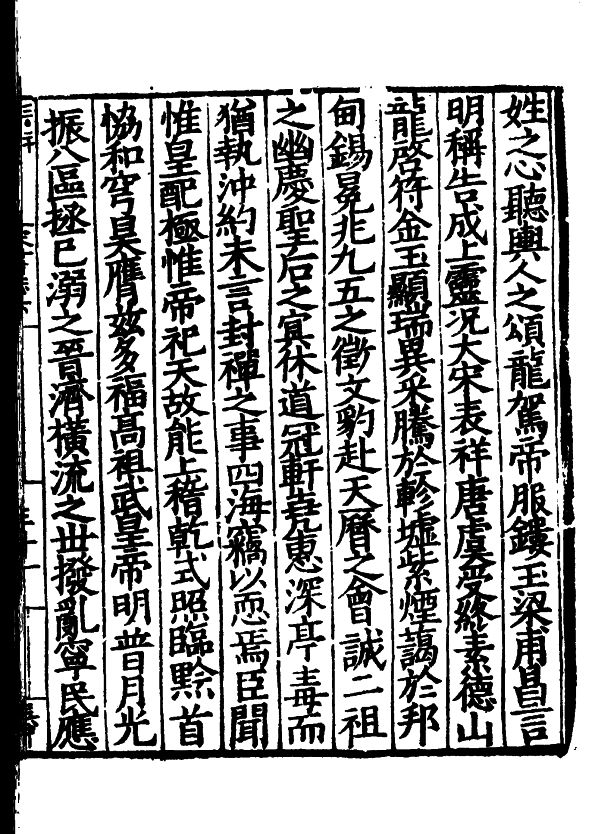 姓之心聽輿人之頌龍駕帝服鏤玉梁甫昌言
明稱告成上靈况大宋表祥唐虞受終素德山
龍啓符金玉顯瑞異采騰於軫墟紫煙藹於邦
甸錫冕兆九五之徵文豹赴天曆之會誠二祖
之幽慶聖后之冥休道冠軒堯惠深亭毒而
猶執沖約未言封禪之事四海竊以恧焉臣聞
惟皇配極惟帝祀天故能上稽乾式照臨黔首
恊和穹昊膺兹多福高祖武皇帝明普月光
振八區拯已溺之晉濟橫流之丗撥亂寧民應